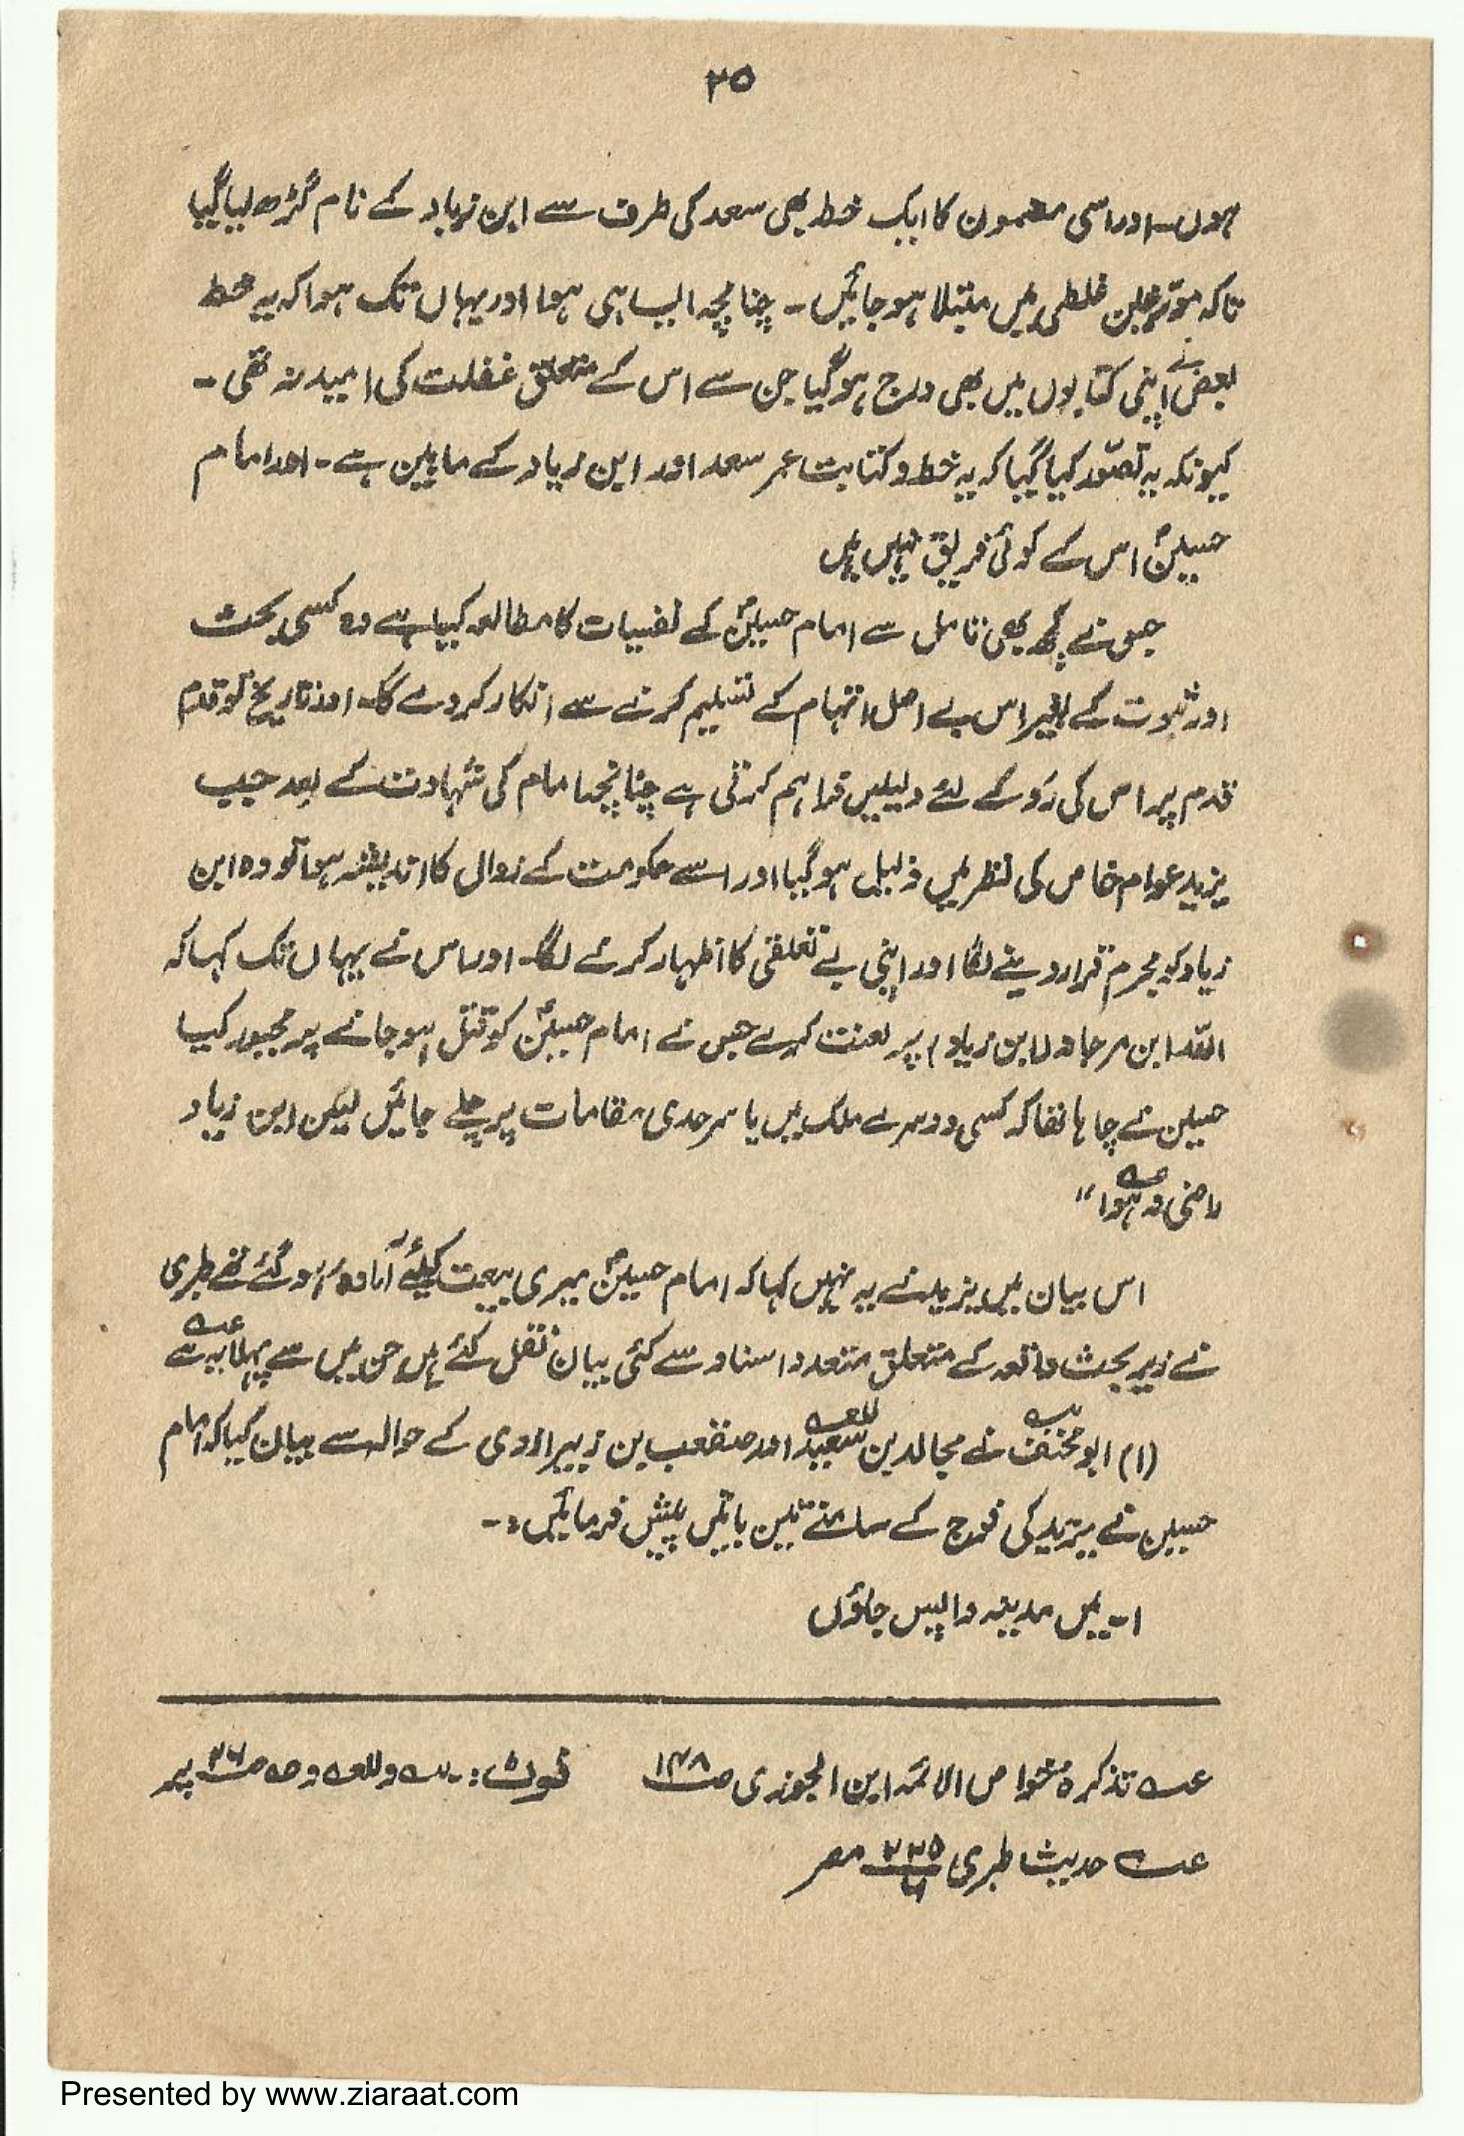 ۲۵
ہوں۔ اور اسی مضمون کا ایک خط بھی سعد کی طرف سے ابن زیاد کے نام گڑھ لیا گیا
تاکہ مورخین غلطی میں مبتلا ہو جائیں۔ چنانچہ ایسا ہی ہوا اور یہاں تک ہوا کہ یہ خط
بعض نے اپنی کتابوں میں بھی درج ہو گیا جن سے اس کے متعلق غفلت کی امید نہ تھی۔
کیونکہ یہ تصور کیا گیا کہ یہ خط و کتابت عمر سعد اور ابن زیاد کے مابین ہے۔ اور امام
حسینؑ اس کے کوئی فریق نہیں ہیں
جس نے کچھ بھی تامل سے امام حسینؑ کے نفسیات کا مطالعہ کیا ہے وہ کسی بحث
اور ثبوت کے بغیر اس بے اصل اتہام کے تسلیم کرنے سے انکار کر دے گا۔ اور تاریخ تو قدم
قدم پر اس کی رو کے لئے دلیلیں فراہم کرتی ہے چنانچہ امام کی شہادت کے بعد جب
یزید عوام خاص کی نظر میں ذلیل ہو گیا اور اسے حکومت کے زوال کا اندیشہ ہوا تو وہ ابن
زیاد کو مجرم قرار دینے لگا اور اپنی بے تعلقی کا اظہار کرنے لگا۔ اور اس نے یہاں تک کہا کہ
اللہ ابن مرجانہ (ابن زیاد) پر لعنت کرے جس نے امام حسینؑ کو قتل ہو جانے پر مجبور کیا
حسین نے چاہا تھا کہ کسی دوسرے ملک میں یا سرحدی مقامات پر چلے جائیں لیکن ابن زیاد
راضی نہ ہوا"
اس بیان میں یزید نے یہ نہیں کہا کہ امام حسینؑ میری بیعت کیلئے آمادہ ہو گئے تھے طبری
نے زیر بحث واقعہ کے متعلق متعدد اسناد سے کئی بیان نقل کئے ہیں جن میں سے پہلا یہ ہے
(۱) ابو مخنف نے مجالد بن سعید اور صقعب بن زبیر ازدی کے حوالہ سے بیان کیا کہ امام
حسین نے یزید کی فوج کے سامنے تین باتیں پیش فرمائیں:۔
۱۔ میں مدینہ واپس جاؤں
تذکرہ خواص الائمہ ابن الجوزی ص۱۴۸ نوٹ:۔ پر
حدیث طبری مصر
Presented by www.ziaraat.com